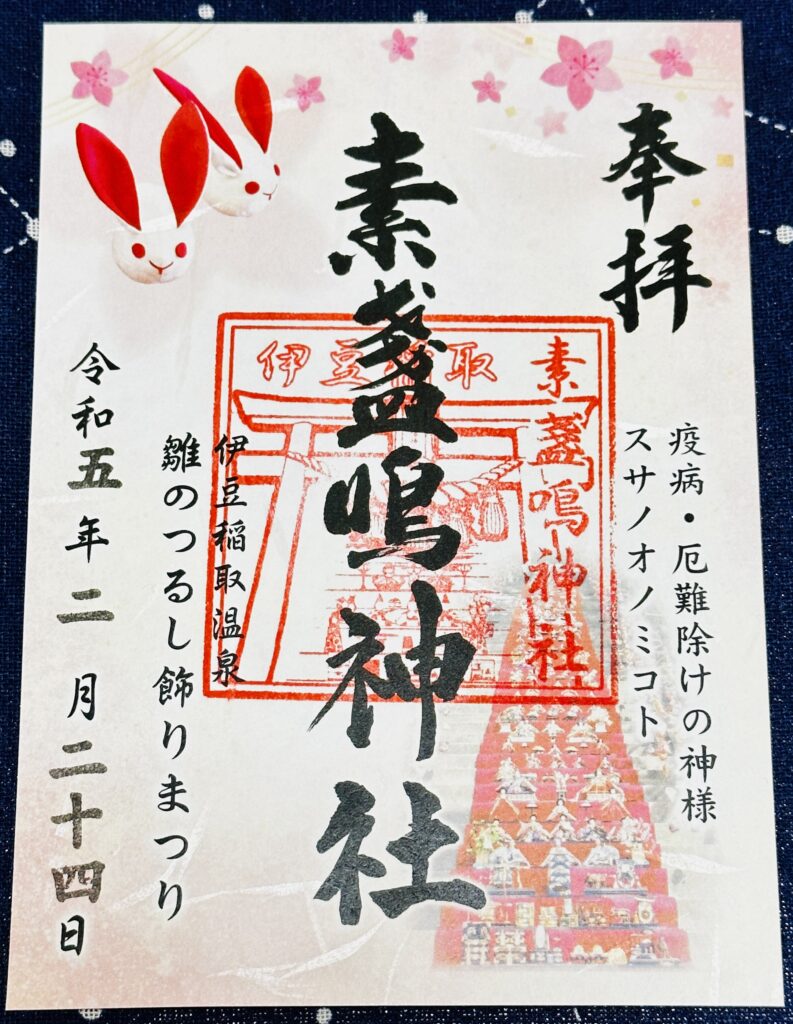 奉拝
疫病・厄難除けの神様
スサノオノミコト
素盞嗚神社
伊豆稲取
素盞嗚神社
伊豆稲取温泉
雛のつるし飾りまつり
令和五年二月二十四日